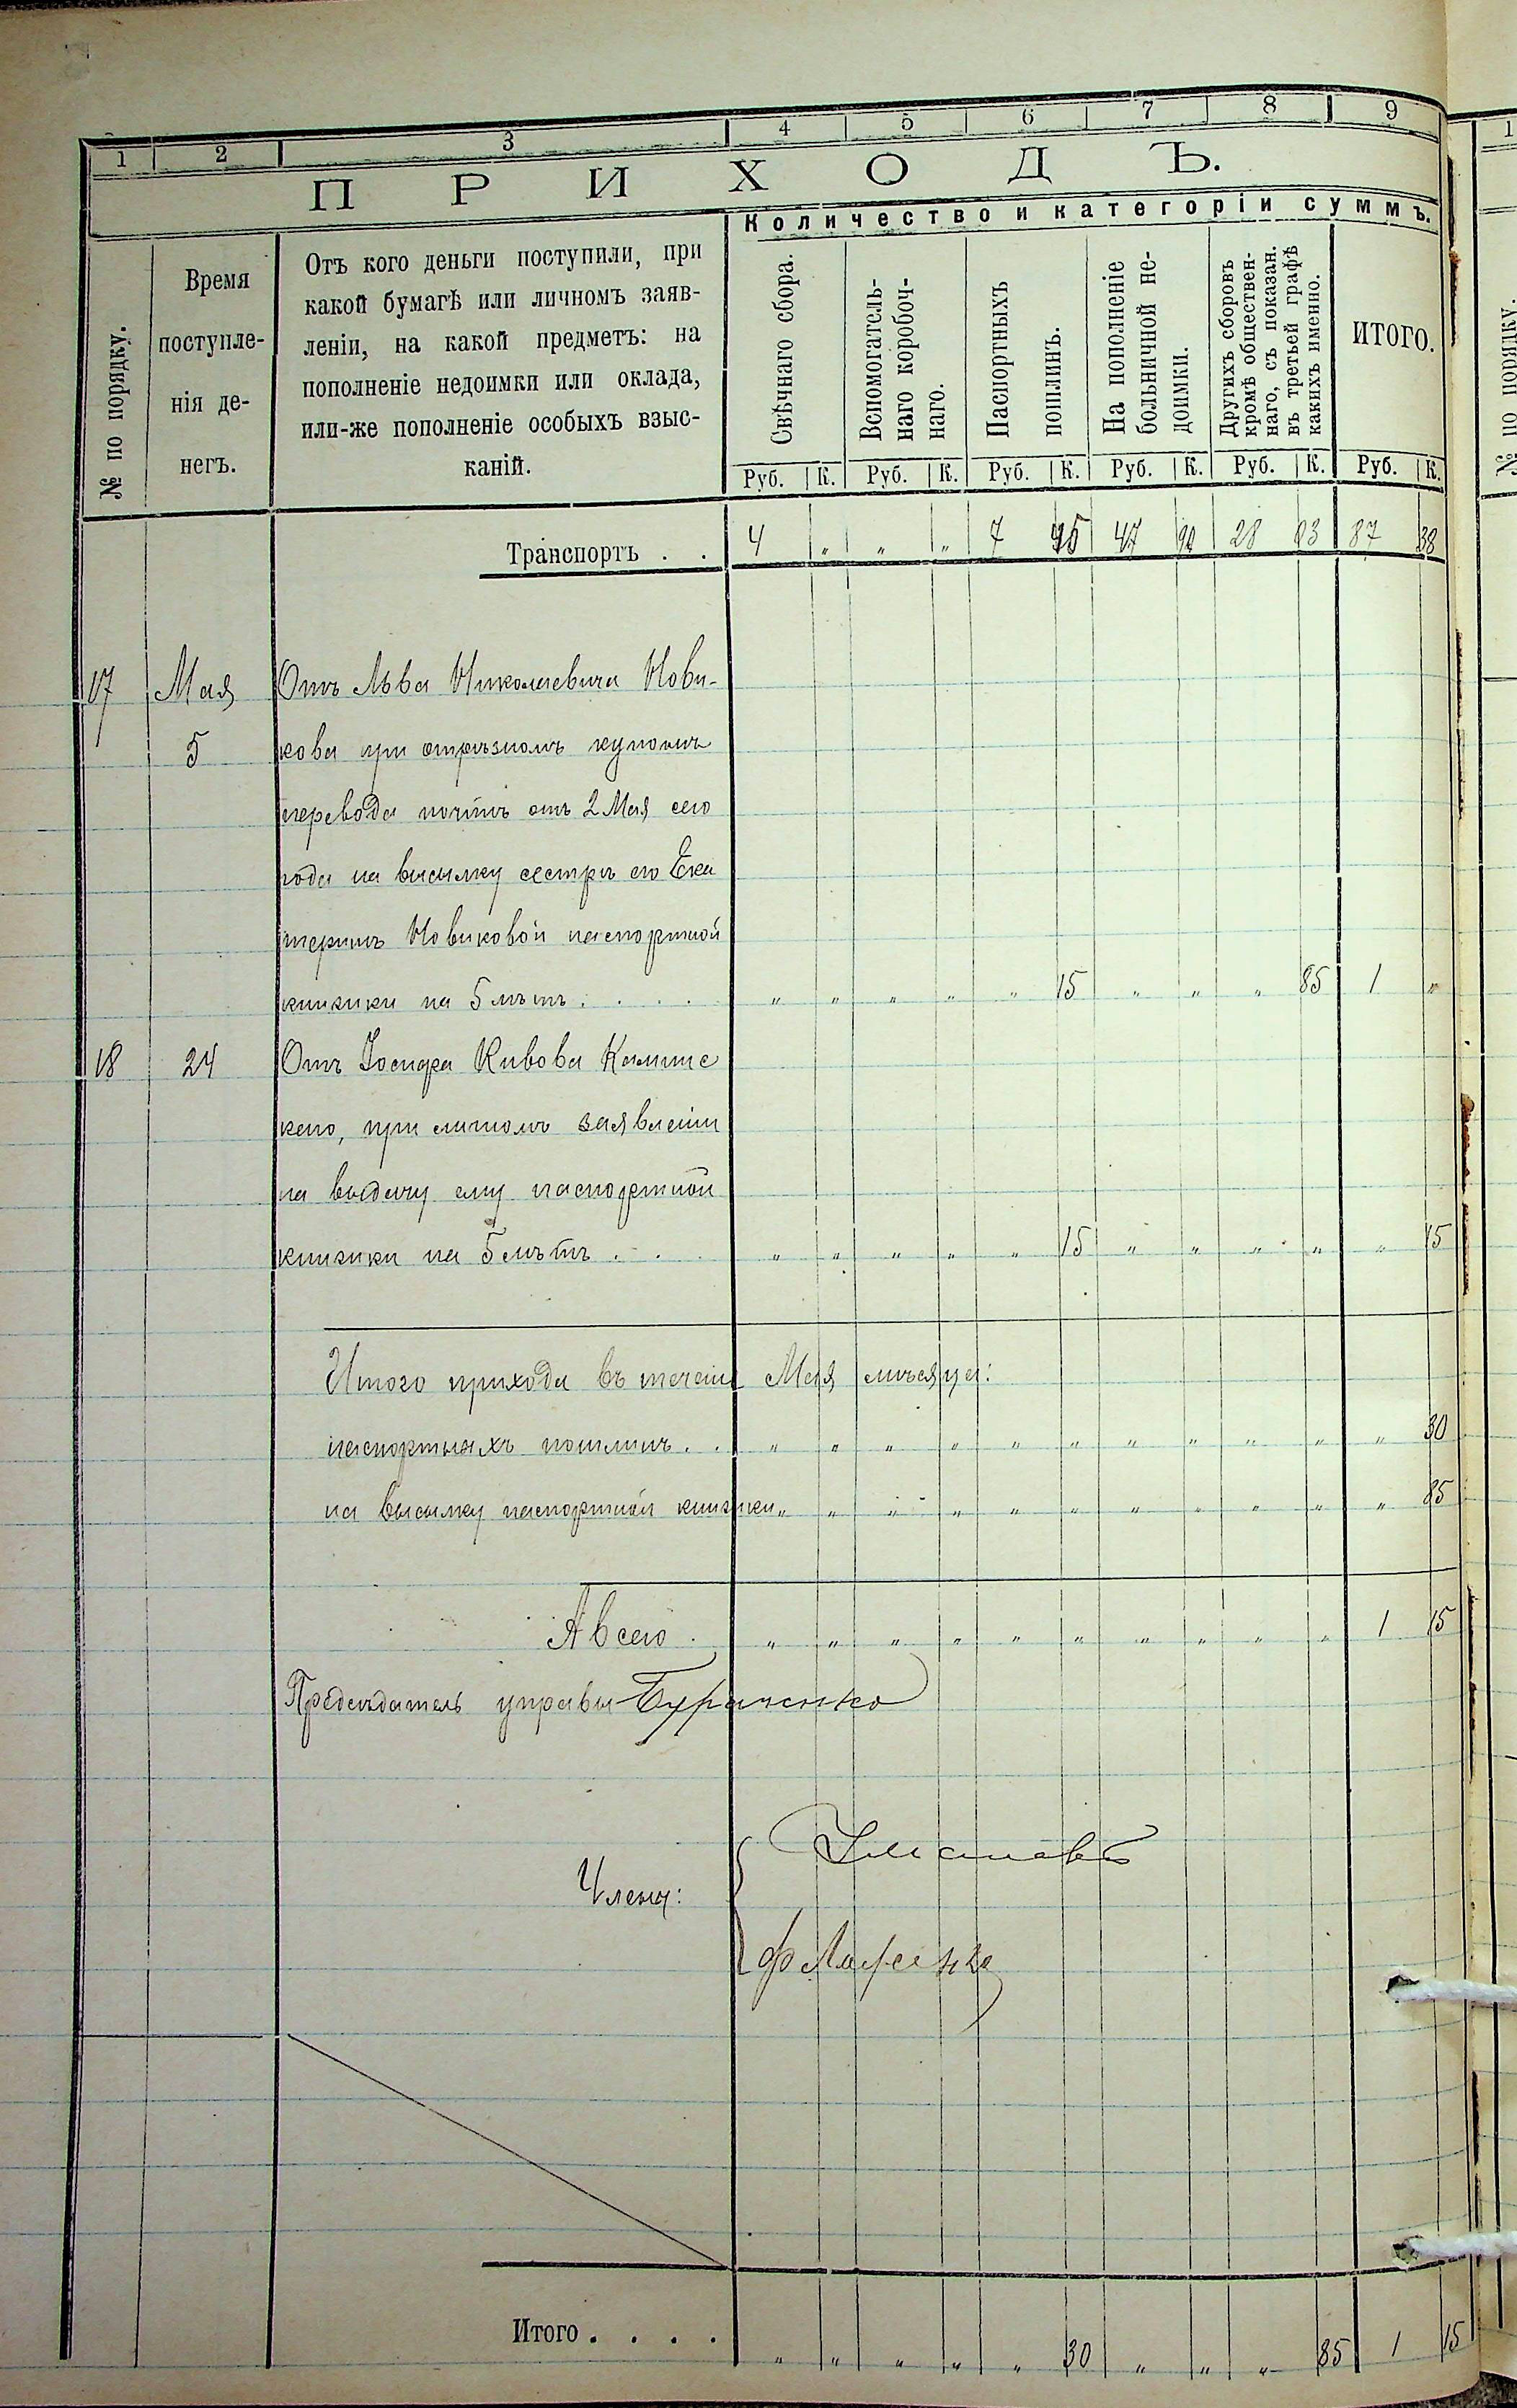 1 2 3 4 5 6 7 8 9
ПРИХОДЪ.
Количество и категоріи суммъ.
№ по порядку.
Время
поступле-
нія де-
негъ.
Отъ кого деньги поступили, при
какой бумагѣ или личномъ заяв-
леніи, на какой предметъ: на
пополненіе недоимки или оклада,
или-же пополненіе особыхъ взыс-
каній.
Свѣчнаго сбора.
Вспомогатель-
наго коробоч-
наго.
Паспортныхъ
пошлинъ.
На пополненіе
больничной не-
доимки.
Другихъ сборовъ
кромѣ обществен-
наго, съ показан.
въ третьей графѣ
какихъ именно.
ИТОГО.
Руб. К. Руб. К. Руб. К. Руб. К. Руб. К. Руб. К.
Транспортъ . . 4 „ „ „ 7 47 28 87 38
17 Мая Отъ Льва Николаевича Нови-
5 кова при отрѣзномъ купонѣ
перевода почтъ отъ 2 Мая сего
года на высылку сестрѣ его Ека
теринѣ Новиковой паспортной
книжки на 5 лѣтъ . . . . „ „ „ „ „ 15 „ „ „ 85 1 „
18 24 Отъ Іосифа Кивова Камине
кего, при личномъ заявленіи
на выдачу ему паспортной
книжки на 5 лѣтъ . . . „ „ „ „ „ 15 „ „ „ „ „ 15
Итого прихода въ теченіе Мая мѣсяца:
паспортныхъ пошлинъ . . „ „ „ „ „ „ „ „ „ „ „ 30
на высылку паспортной книжки „ „ „ „ „ „ „ „ „ „ „ 85
А всего . „ „ „ „ „ „ „ „ „ „ 1 15
Предсѣдатель управы
Члены:
Итого . . . . „ „ „ „ „ 30 „ „ „ 85 1 15
1
№ по порядку.